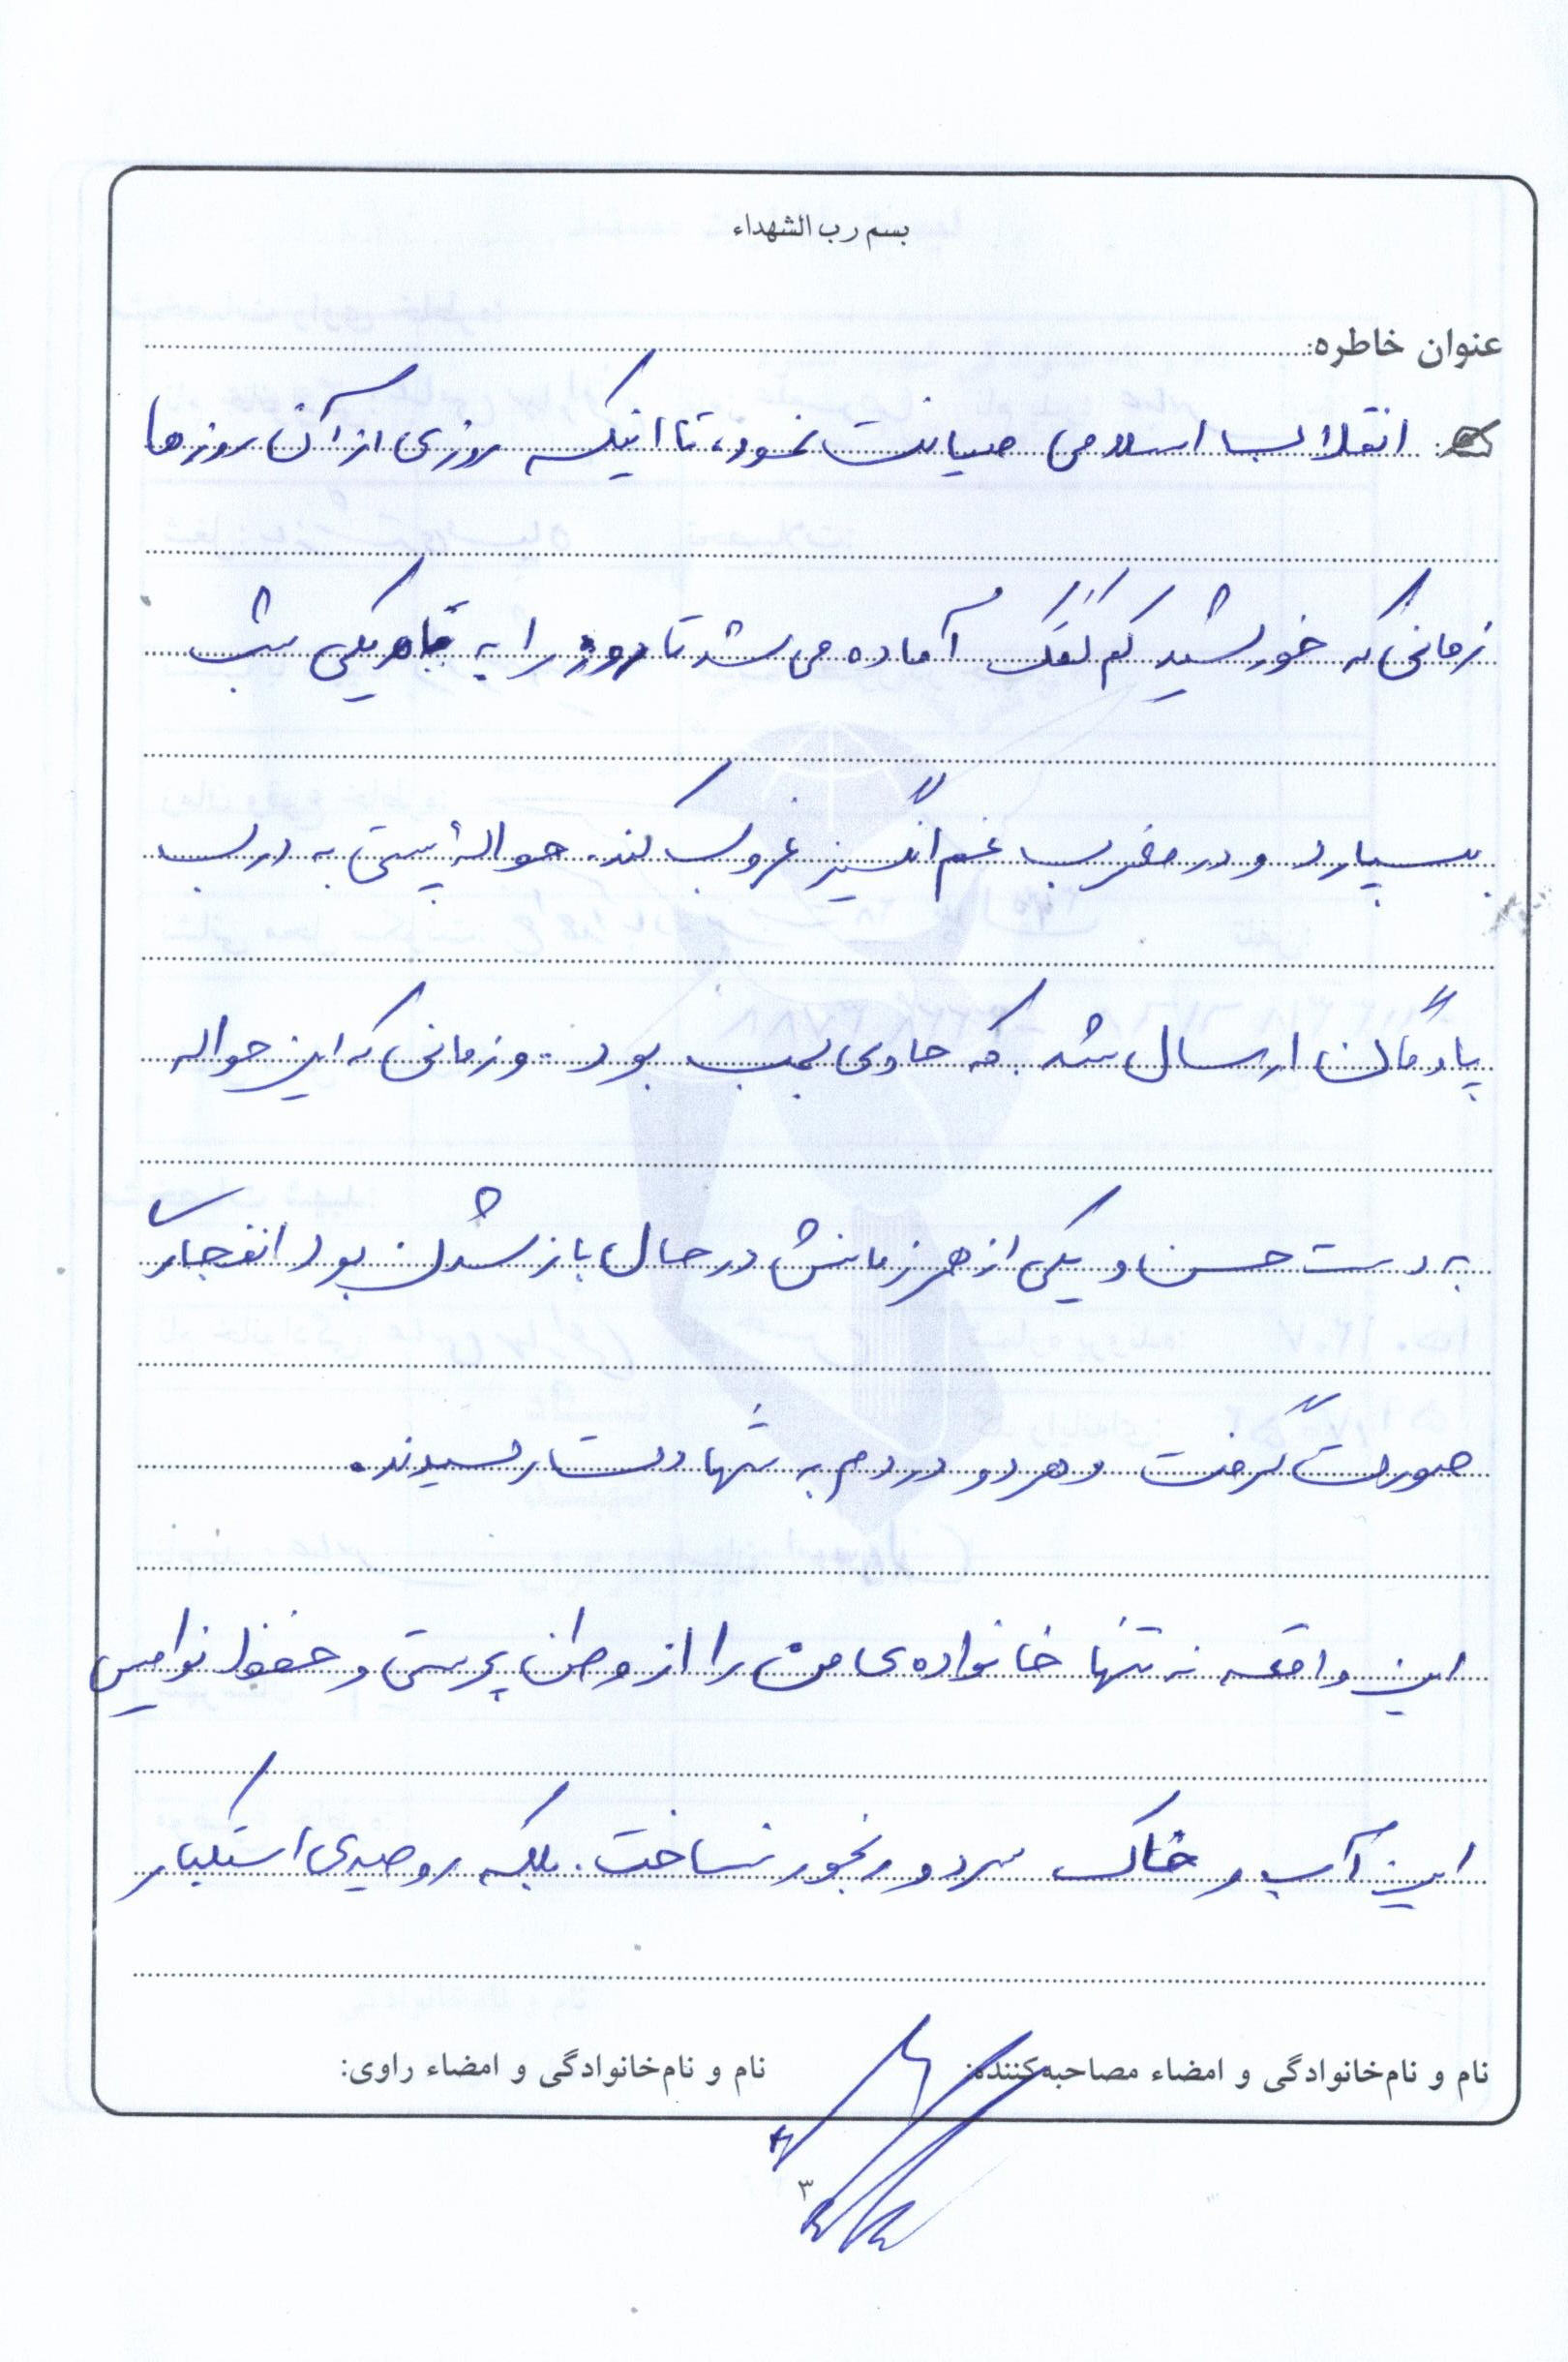 بسم رب الشهداء
عنوان خاطره:
انقلاب اسلامی صیانت نمود، تا اینکه روزی از آن روزها
زمانی که خورشید کم کمک آماده می شد تا روز را به تاریکی شب
بسپارد و در مغرب غم انگیز غروب کند. حواله پستی به درب
پادگان ارسال شد که حاوی بمب بود. و زمانی که این حواله
به دست حسن و یکی از همرزمانش در حال باز شدن بود انفجار
صورت گرفت و هر دو در دم به شهادت رسیدند.
این واقعه نه تنها خانواده ی من را از وطن پرستی و حفظ نوامیس
این آب و خاک سرد و رنجور نساخت. بلکه روحیه ی استکبار
نام و نام‌خانوادگی و امضاء مصاحبه‌کننده:
نام و نام‌خانوادگی و امضاء راوی:
۳